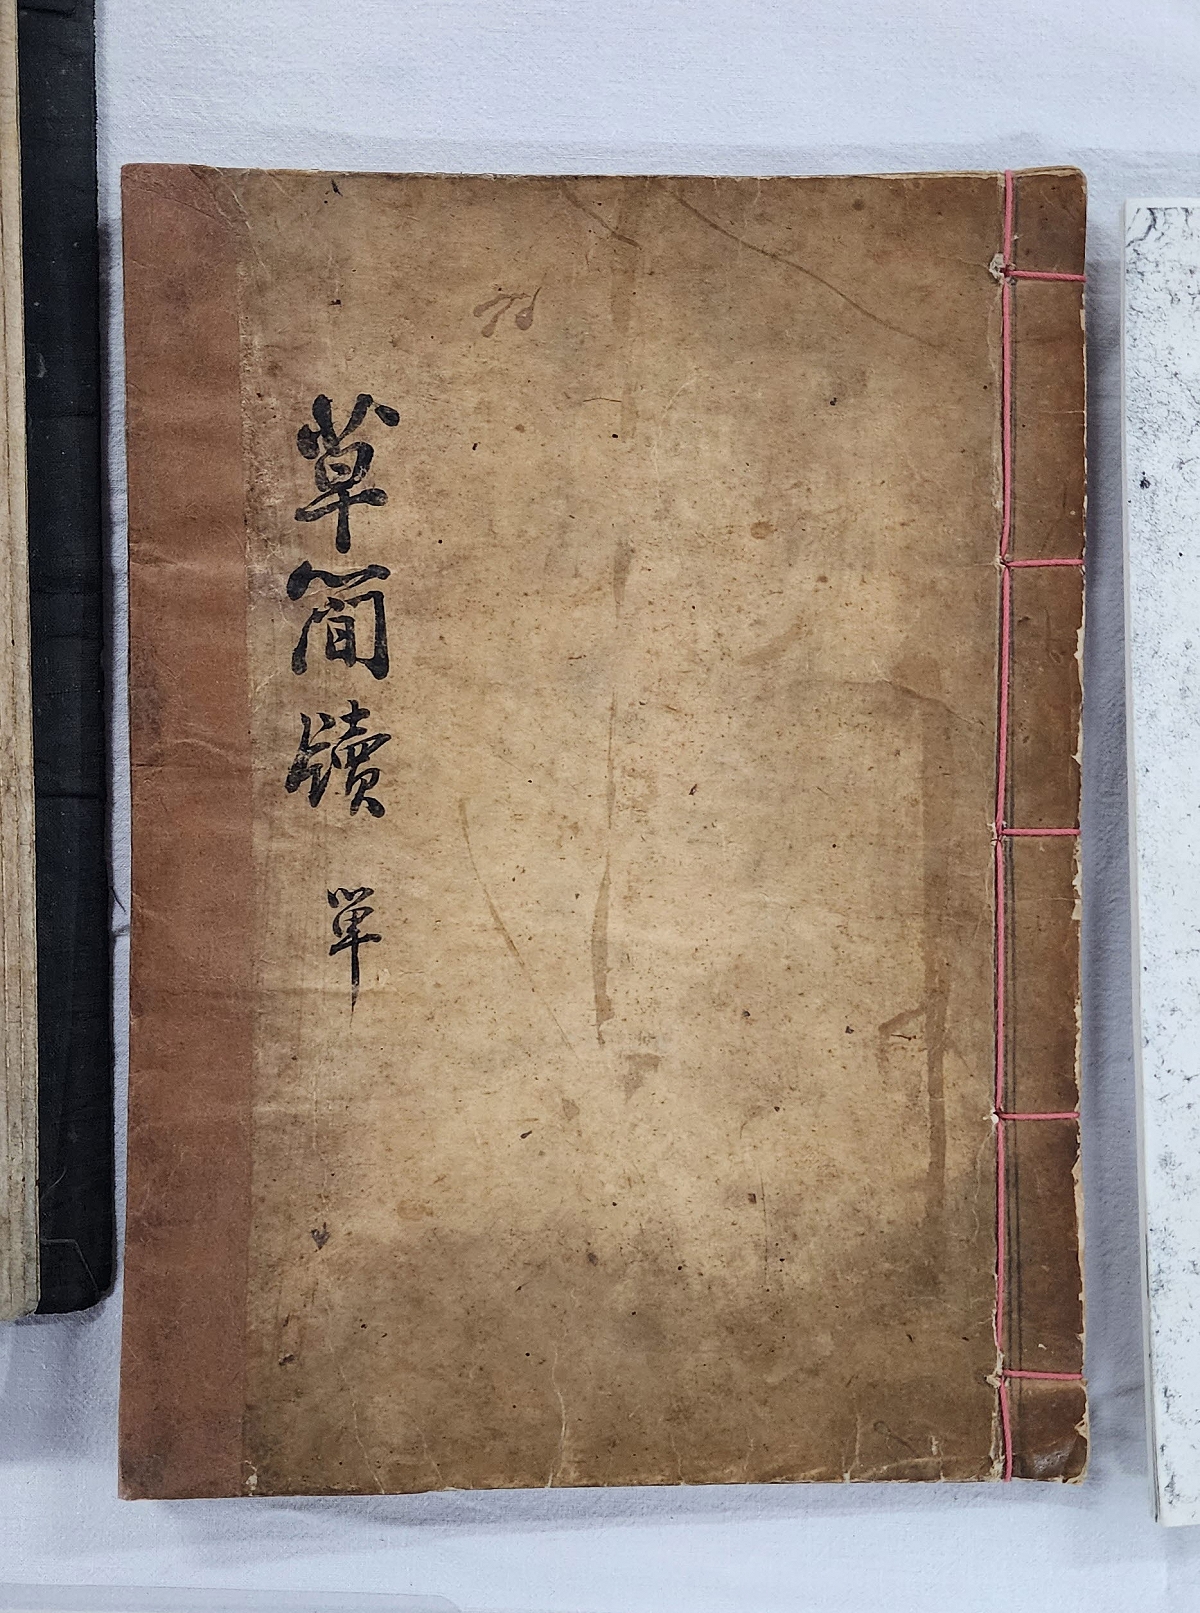 草簡牘 單